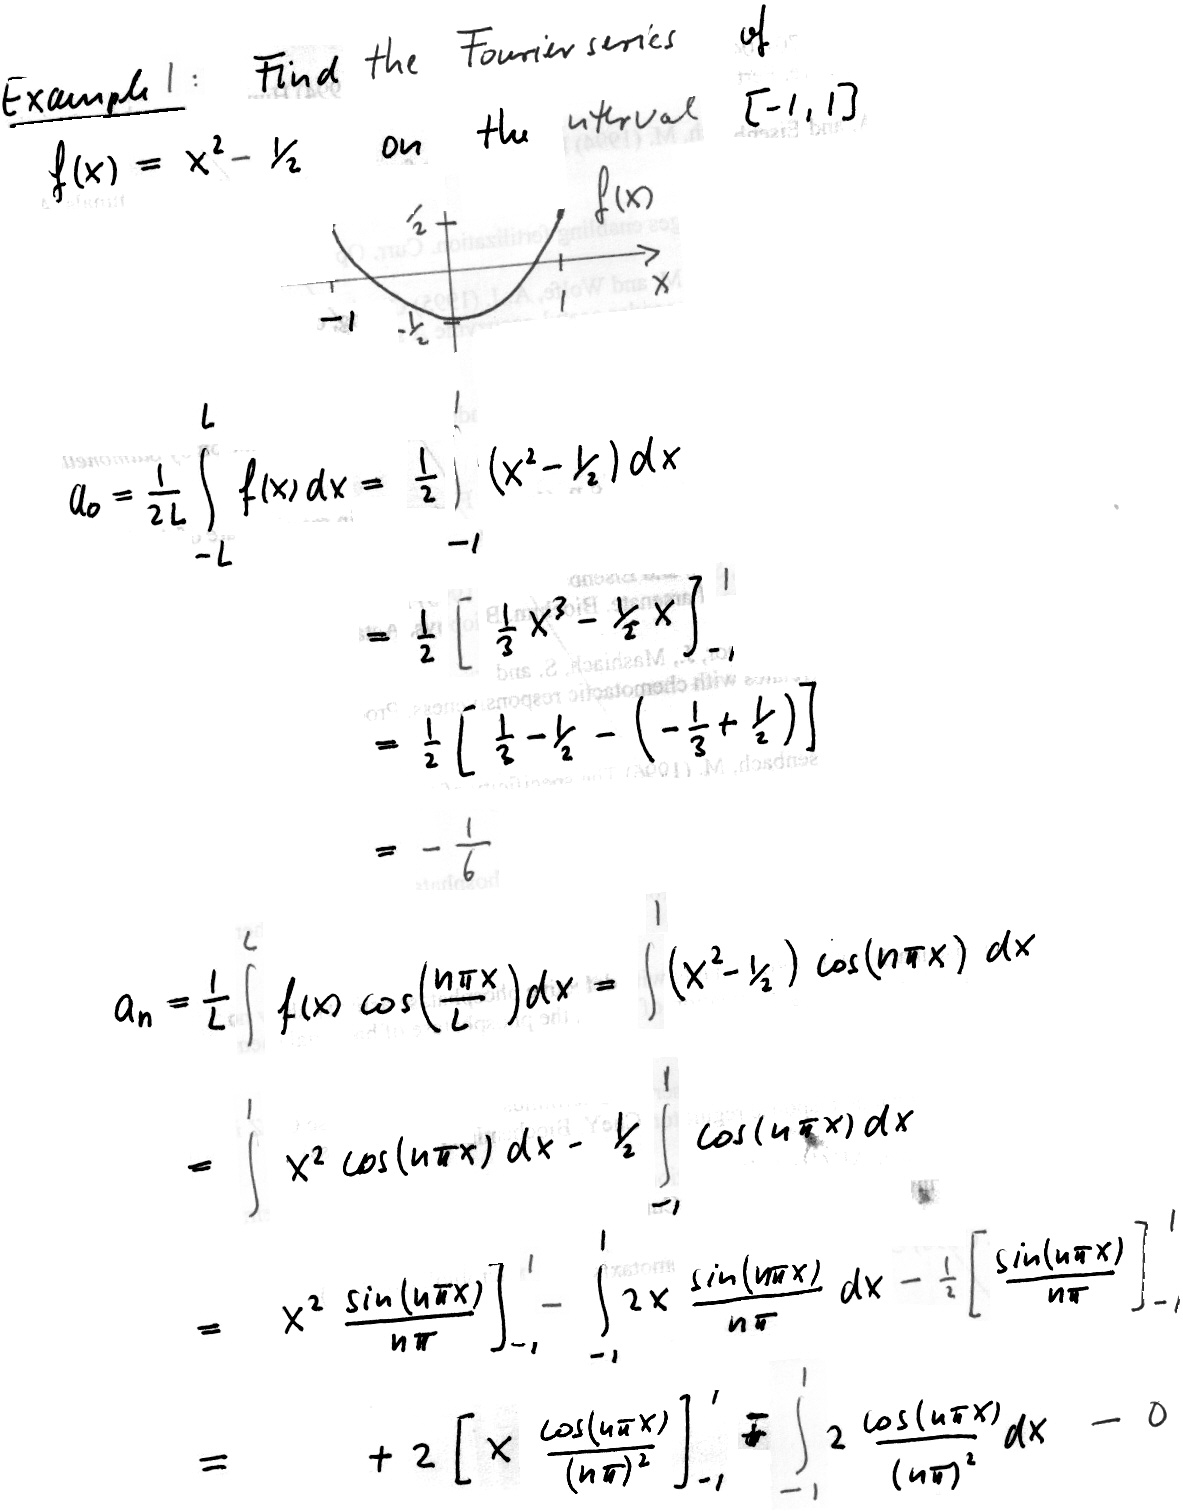 Example 1: Find the Fourier series of
f(x) = x² - 1/2 on the interval [-1, 1]
1/2 f(x)
-1 -1/2 1 x
a₀ = 1/2L ∫_{-L}^{L} f(x) dx = 1/2 ∫_{-1}^{1} (x² - 1/2) dx
= 1/2 [ 1/3 x³ - 1/2 x ]_{-1}^{1}
= 1/2 [ 1/3 - 1/2 - ( - 1/3 + 1/2 ) ]
= - 1/6
aₙ = 1/L ∫^{L} f(x) cos(nπx/L) dx = ∫^{1} (x² - 1/2) cos(nπx) dx
= ∫^{1} x² cos(nπx) dx - 1/2 ∫_{-1}^{1} cos(nπx) dx
= x² sin(nπx)/nπ ]_{-1}^{1} - ∫_{-1}^{1} 2x sin(nπx)/nπ dx - 1/2 [ sin(nπx)/nπ ]_{-1}^{1}
= + 2 [ x cos(nπx)/(nπ)² ]_{-1}^{1} ∫_{-1}^{1} 2 cos(nπx)/(nπ)² dx - 0